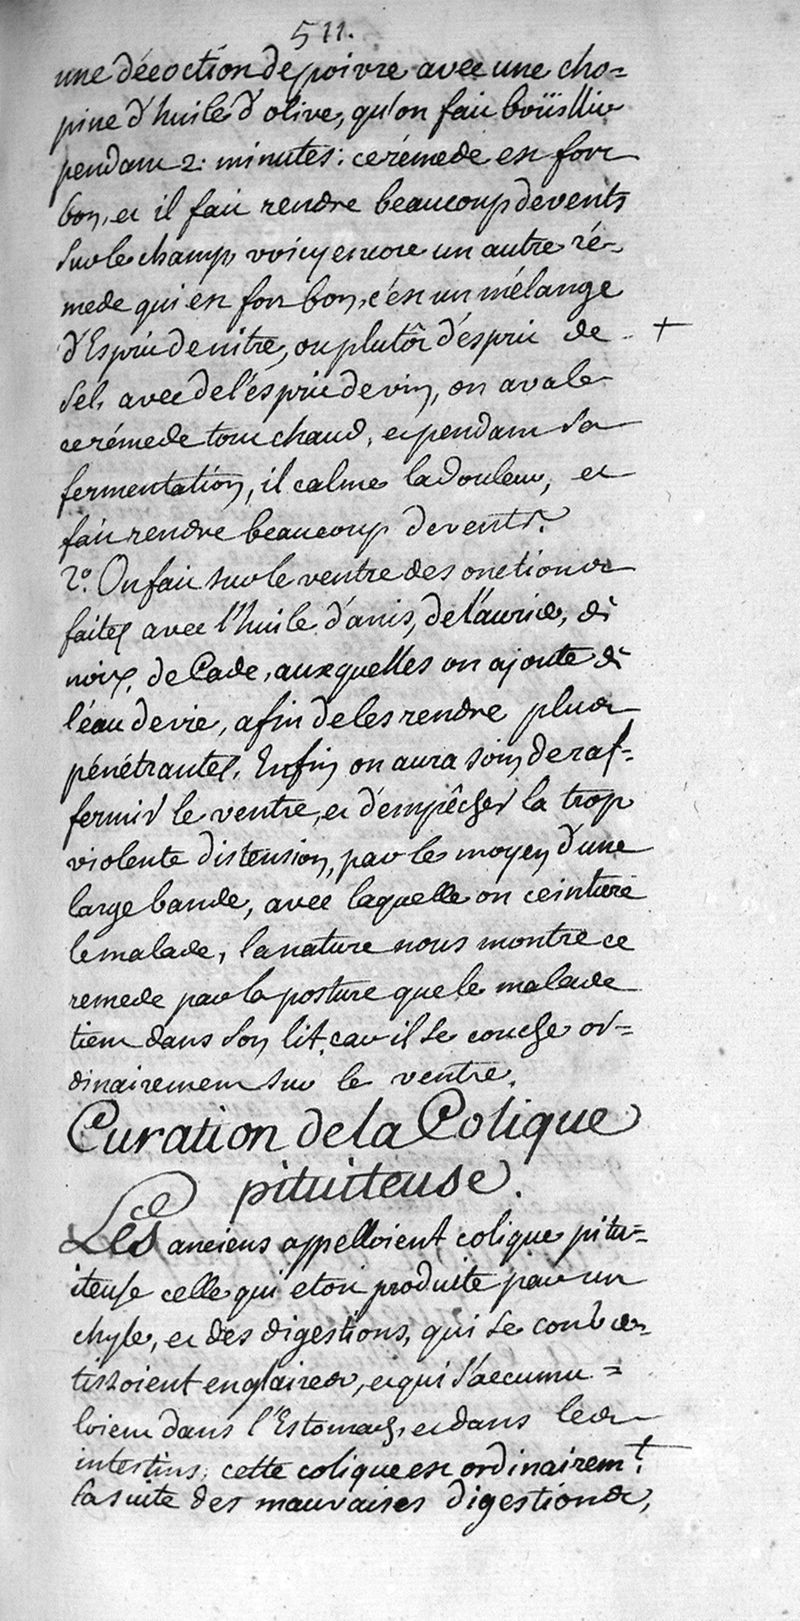 511.
une décoction de poivre avec une cho=
pine d'huile d'olive, qu'on fait boüillir
pendant 2. minutes: ce rémede est fort
bon, et il fait rendre beaucoup de vents
sur le champ, voicy encore un autre ré-
mede qui est fort bon, c'est un mélange
d'Esprit de nitre, ou plutôt d'ésprit de +
sel, avec de l'ésprit de vin, on avale
ce rémede tout chaud, et pendant sa
fermentation, il calme la douleur, et
fait rendre beaucoup de vents.
2º. On fait sur le ventre des onctions
faites avec l'huile d'anis, de l'aurier, de
noix, de Cade, auxquelles on ajoute de
l'éau de vie, afin de les rendre plus
pénétrantes. Enfin on aura soin de raf=
fermir le ventre, et d'empêcher la trop
violente distension, par le moyen d'une
large bande, avec laquelle on ceinture
le malade, la nature nous montre ce
remede par la posture que le malade
tient dans son lit, car il se couche or=
dinairement sur le ventre.
Curation de la Colique
pituiteuse.
Les anciens appelloient colique pitui=
teuse celle qui etoit produite par un
chyle, et des digestions, qui se conver=
tissoient en glaires, et qui s'accumu=
loient dans l'Estomach, et dans les
intestins, cette colique est ordinairemt.
la suite des mauvaises digestions,